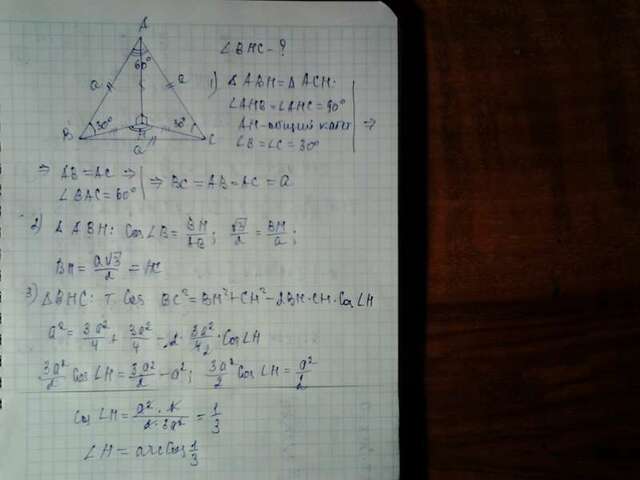 A
60°
a
a
30°
30°
B
H
C
a
∠BHC - ?
1) ΔABH = ΔACH:
∠AHB = ∠AHC = 90°
AH - общий катет ⇒
∠B = ∠C = 30°
⇒ AB = AC ⇒
∠BAC = 60° ⇒ BC = AB = AC = a
2) ΔABH: Cos∠B = BH/AB; √3/2 = BH/a;
BH = a√3/2 = HC
3) ΔBHC: т. Cos BC² = BH² + CH² - 2BH·CH·Cos∠H
a² = 3a²/4 + 3a²/4 - 2·3a²/4 2·Cos∠H
3a²/2 Cos∠H = 3a²/2 - a²; 3a²/2 Cos∠H = a²/2
Cos∠H = a²·2/2·3a² = 1/3
∠H = arccos 1/3